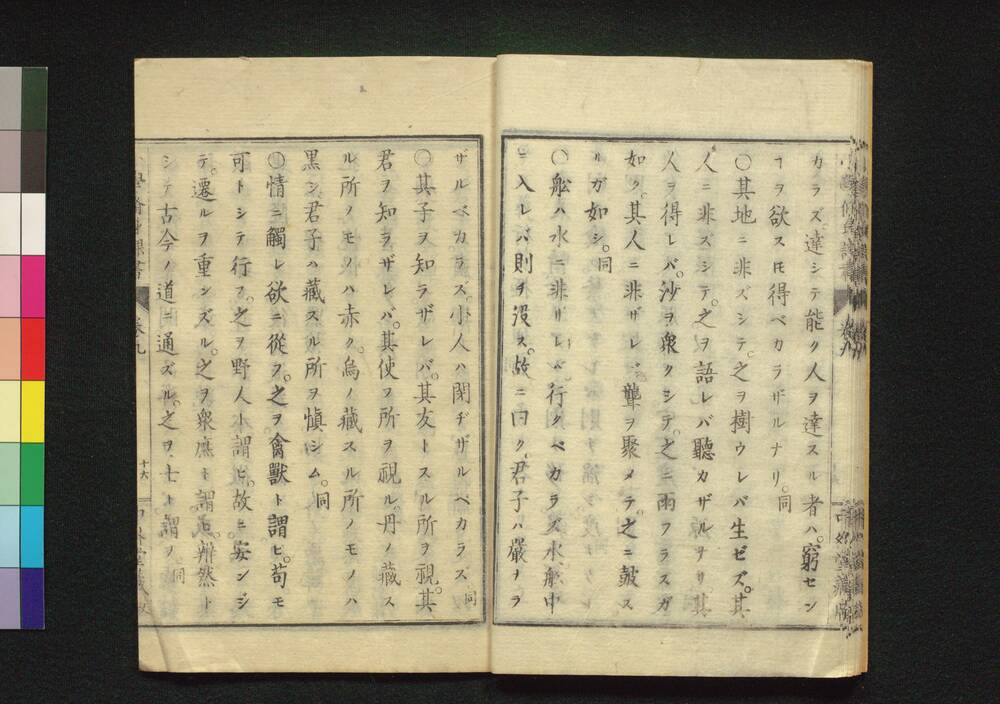 カラズ。達シテ能ク人ヲ達スル者ハ。窮セン
ヿヲ欲スㇳモ得ベカラザルナリ。同
〇其地ニ非ズシテ。之ヲ樹ウレバ生ゼズ。其
人ニ非ズシテ。之ヲ語レバ聽カザルナリ其
人ヲ得レバ。沙ヲ衆クシテ。之ニ雨フラスガ
如ク。其人ニ非ザレバ。聾ヲ聚メテ。之ニ皷ス
ルガ如シ。同
〇舩ハ水ニ非ザレバ行クベカラズ。水舩中
ニ入レバ則チ没ス。故ニ曰ク。君子ハ嚴ナラ
ザルベカラズ。小人ハ閉ヂザルベカラズ 同
〇其子ヲ知ラザレバ。其友トスル所ヲ視。其
君ヲ知ラザレバ。其使フ所ヲ視ル。丹ノ藏ス
ル所ノモノハ赤ク。烏ノ藏スル所ノモノハ
黒シ。君子ハ藏スル所ヲ慎シム。同
〇情ニ觸レ欲ニ從フ。之ヲ禽獸ト謂ヒ。苟モ
可トシテ行フ。之ヲ野人ト謂ヒ。故ニ安ンジ
テ。遷ルヲ重ンズル。之ヲ衆庶ト謂ヒ。辨然ト
シテ古今ノ道ニ通ズル。之ヲ士ト謂フ。同
卷九
十六